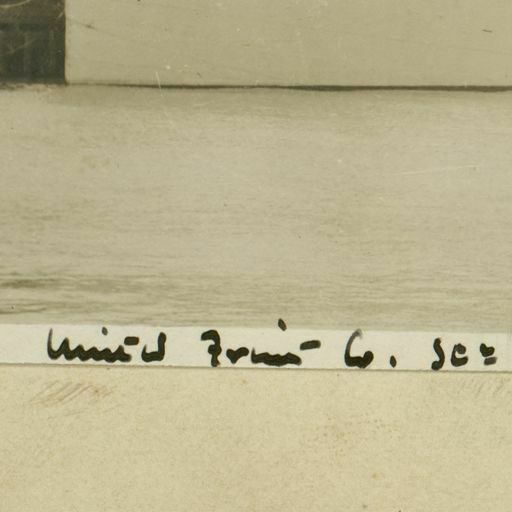 United Fruit Co.